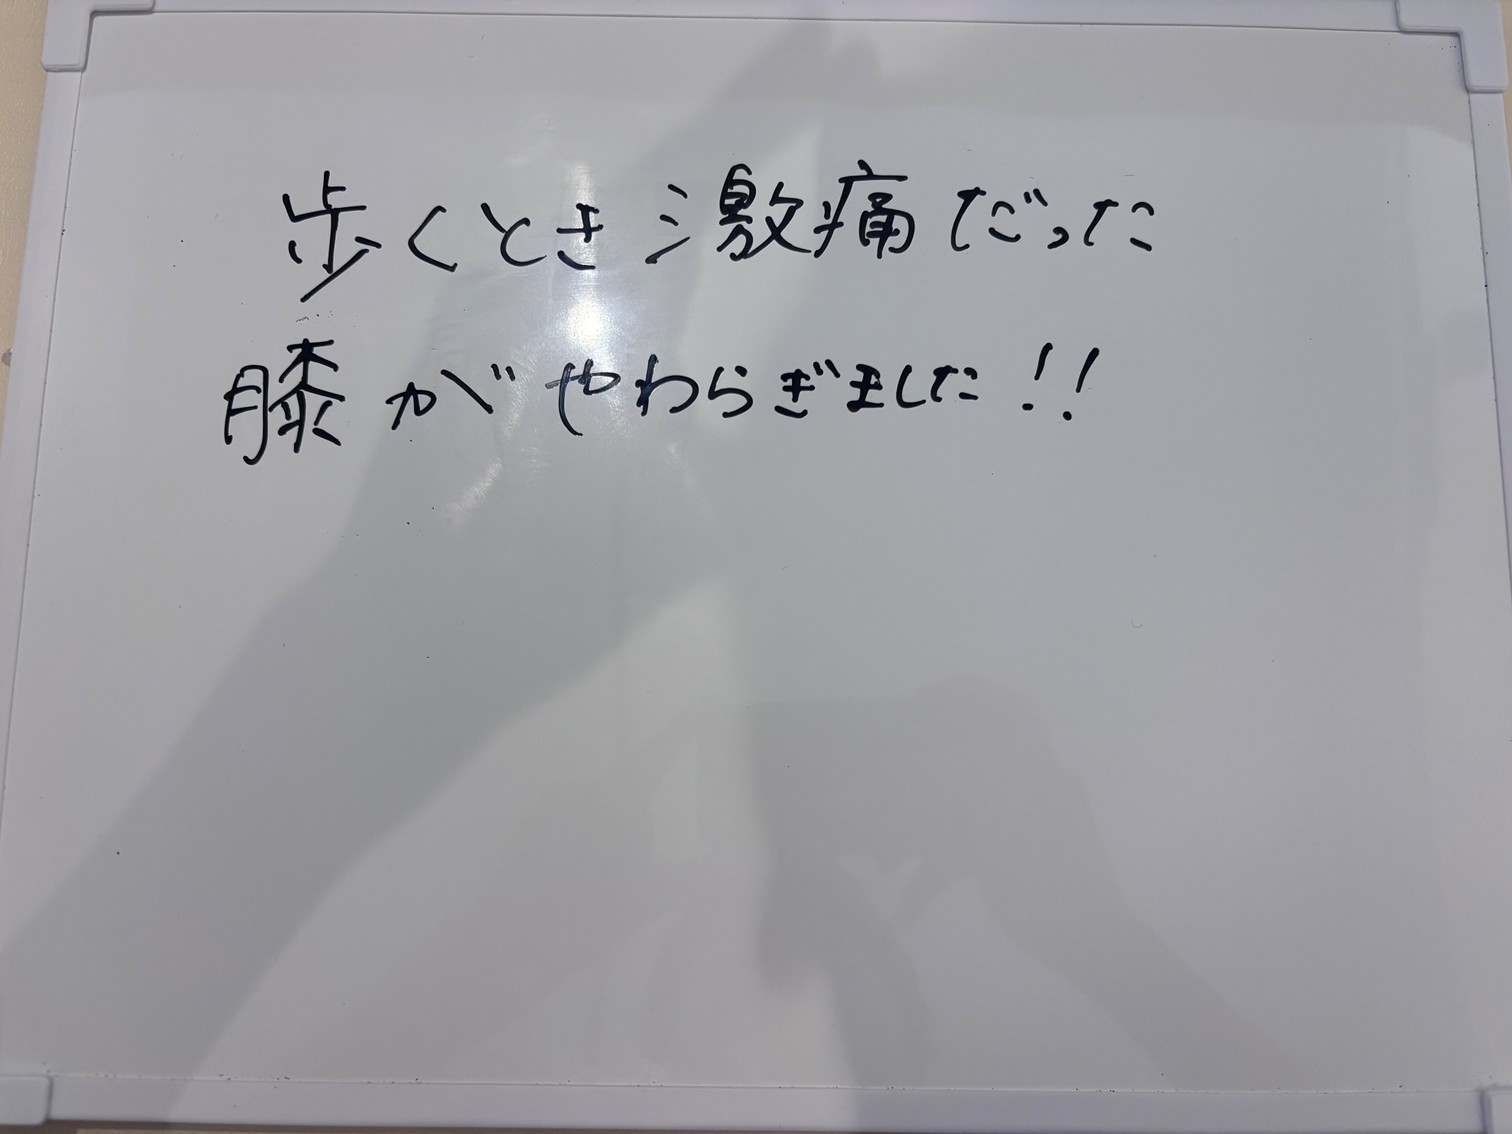 歩くとき激痛だった
膝がやわらぎました!!